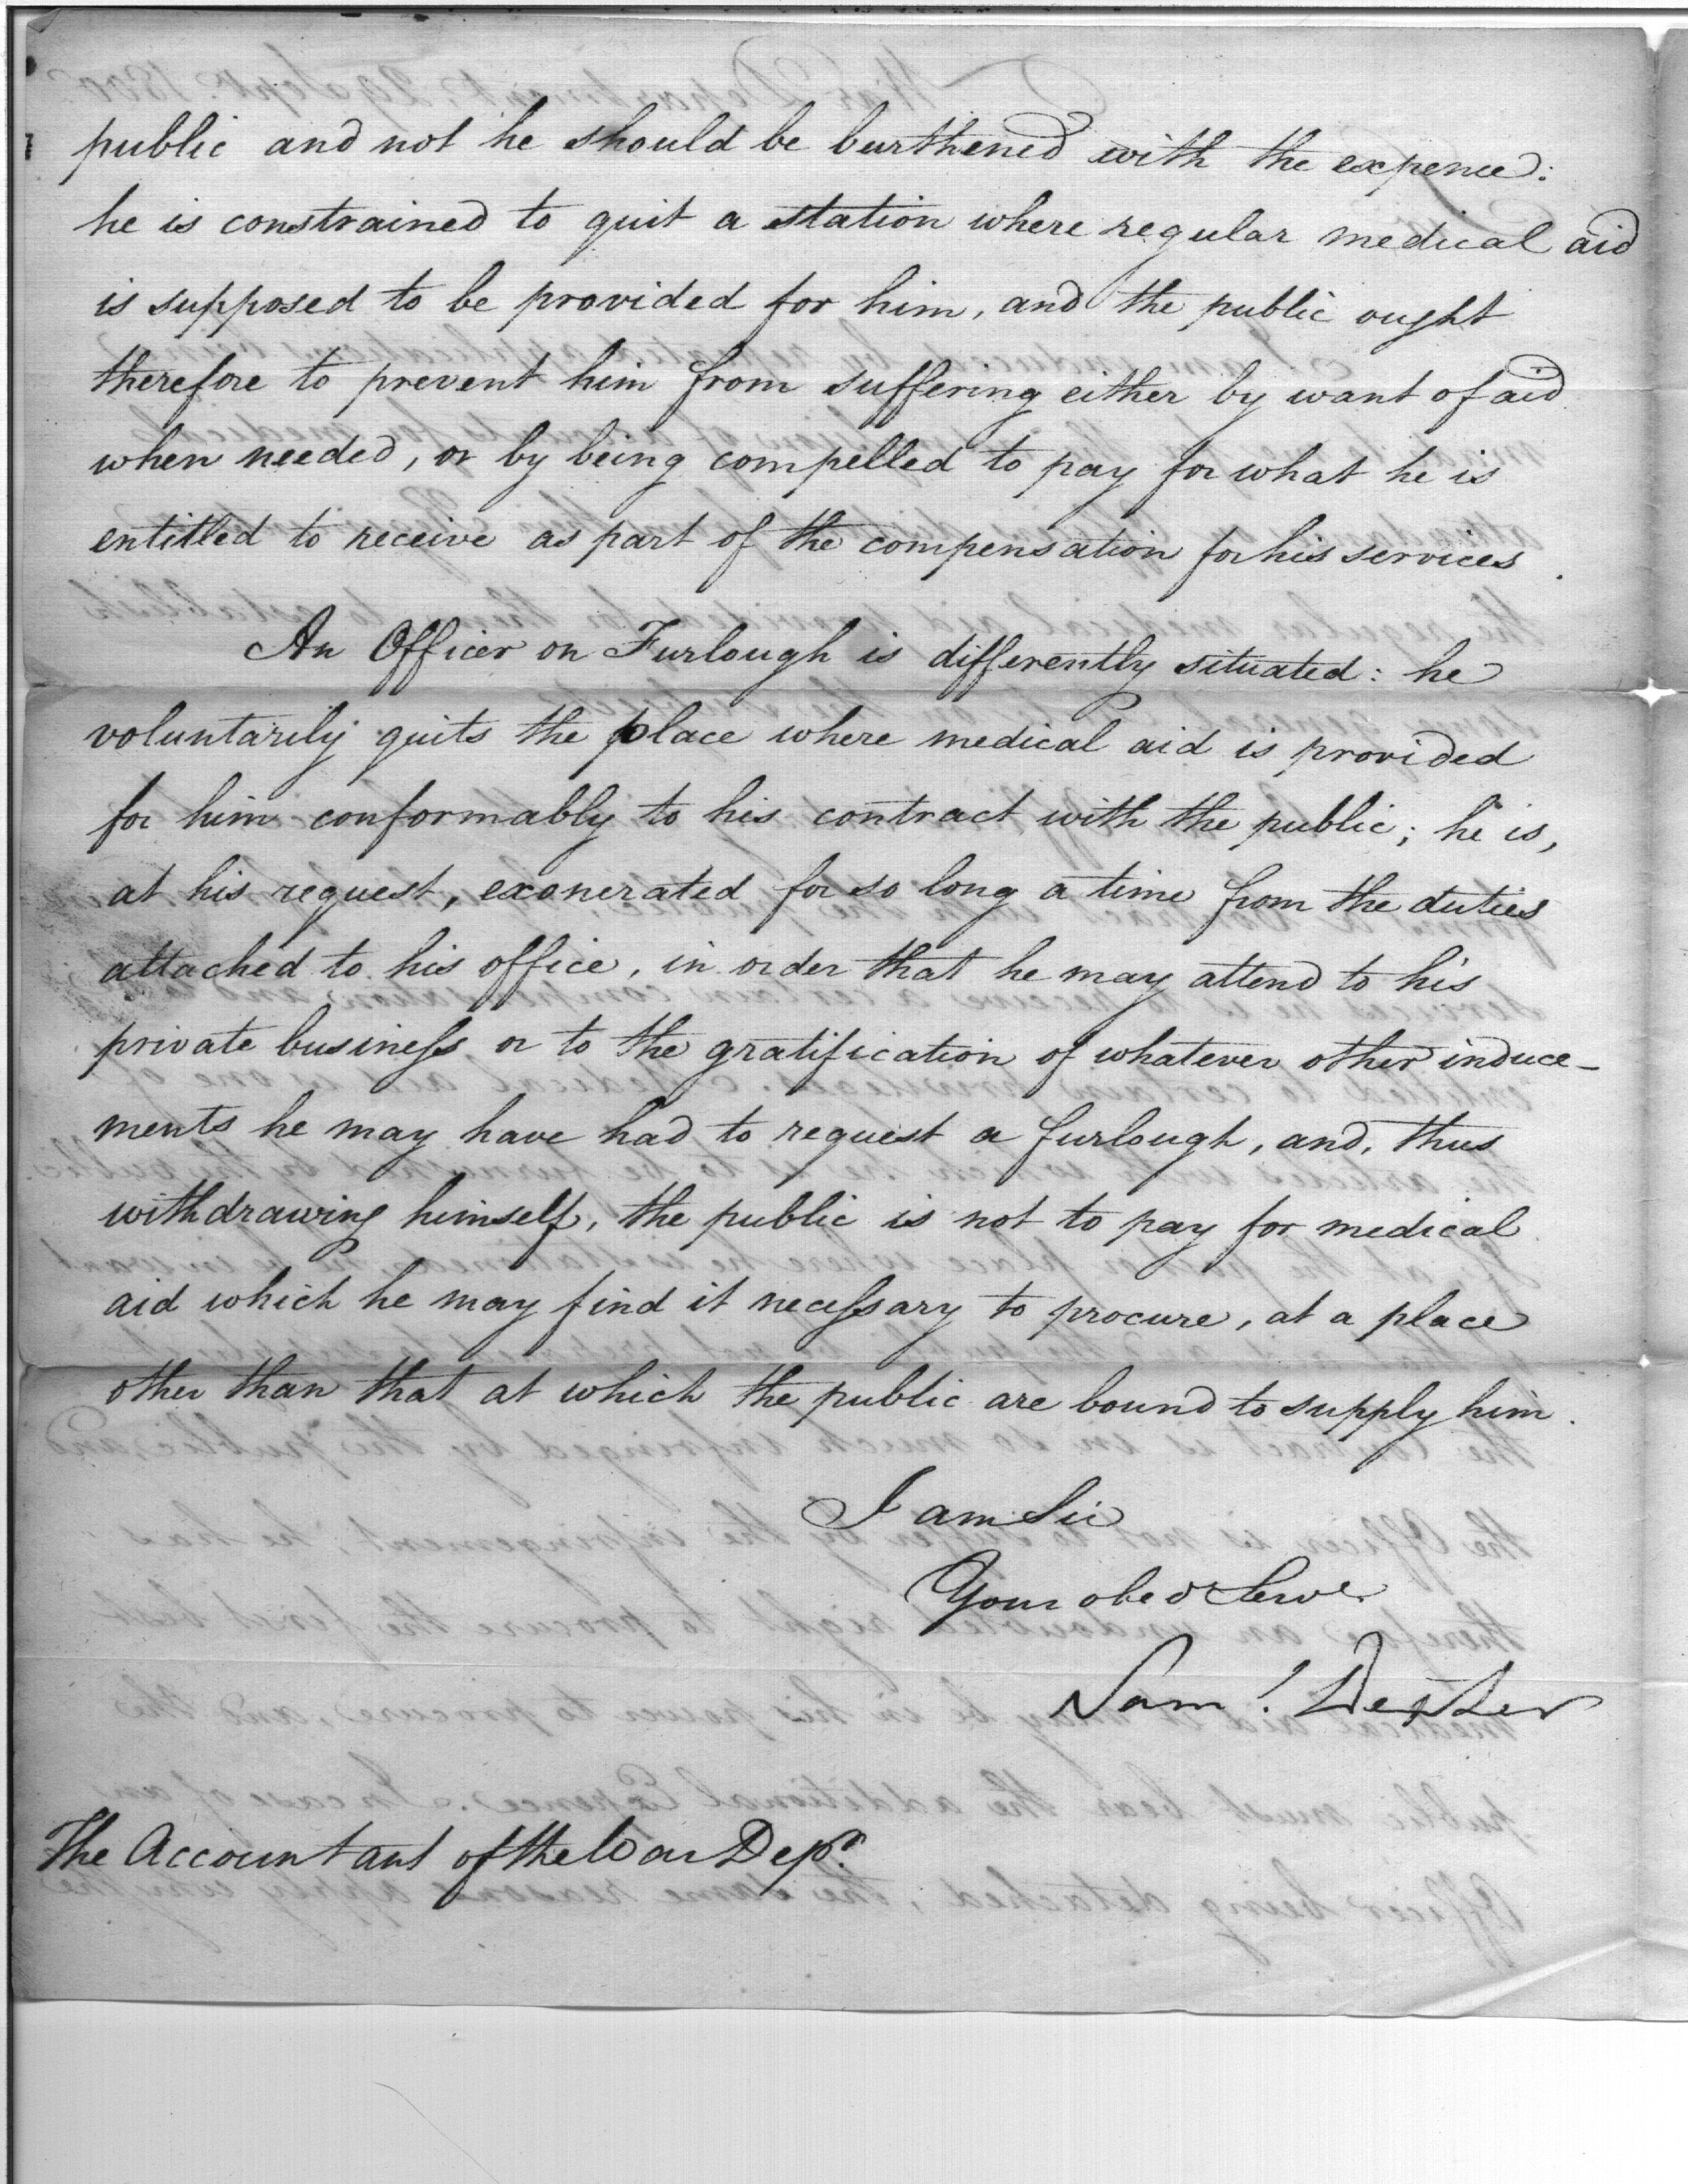 public and not he should be burthened with the expence:
he is constrained to quit a station where regular medical aid
is supposed to be provided for him, and the public ought
therefore to prevent him from suffering either by want of aid
when needed, or by being compelled to pay for what he is
entitled to receive as part of the compensation for his services.
An Officer on Furlough is differently situated: he
voluntarily quits the place where medical aid is provided
for him conformably to his contract with the public; he is,
at his request, exonerated for so long a time from the duties
attached to his office, in order that he may attend to his
private business or to the gratification of whatever other induce-
ments he may have had to request a furlough, and, thus
withdrawing himself, the public is not to pay for medical
aid which he may find it necessary to procure, at a place
other than that at which the public are bound to supply him.
I am Sir
Your obed Serve
Saml. Dexter
The Accountant of the War Dept.